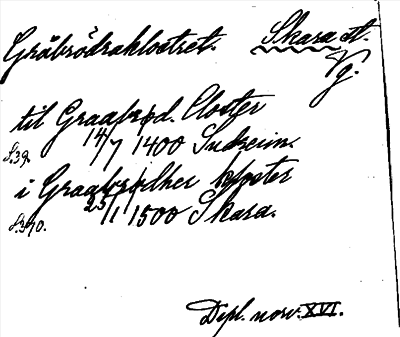 Gråbrödraklostret. Skara st.
Vg.
til Graabrød. Closter
s.39. 14/7 1400 Sudreim.
i Graabrølher kloster
s.370. 25/1 1500 Skara.
Dipl. norv. XVI.